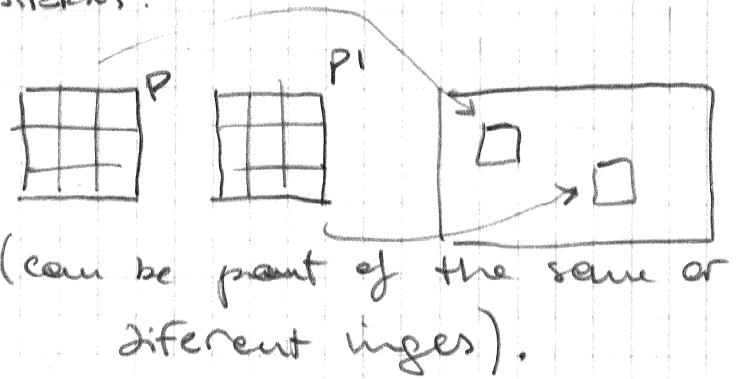 P P1
(can be part of the same or
diferent imges).